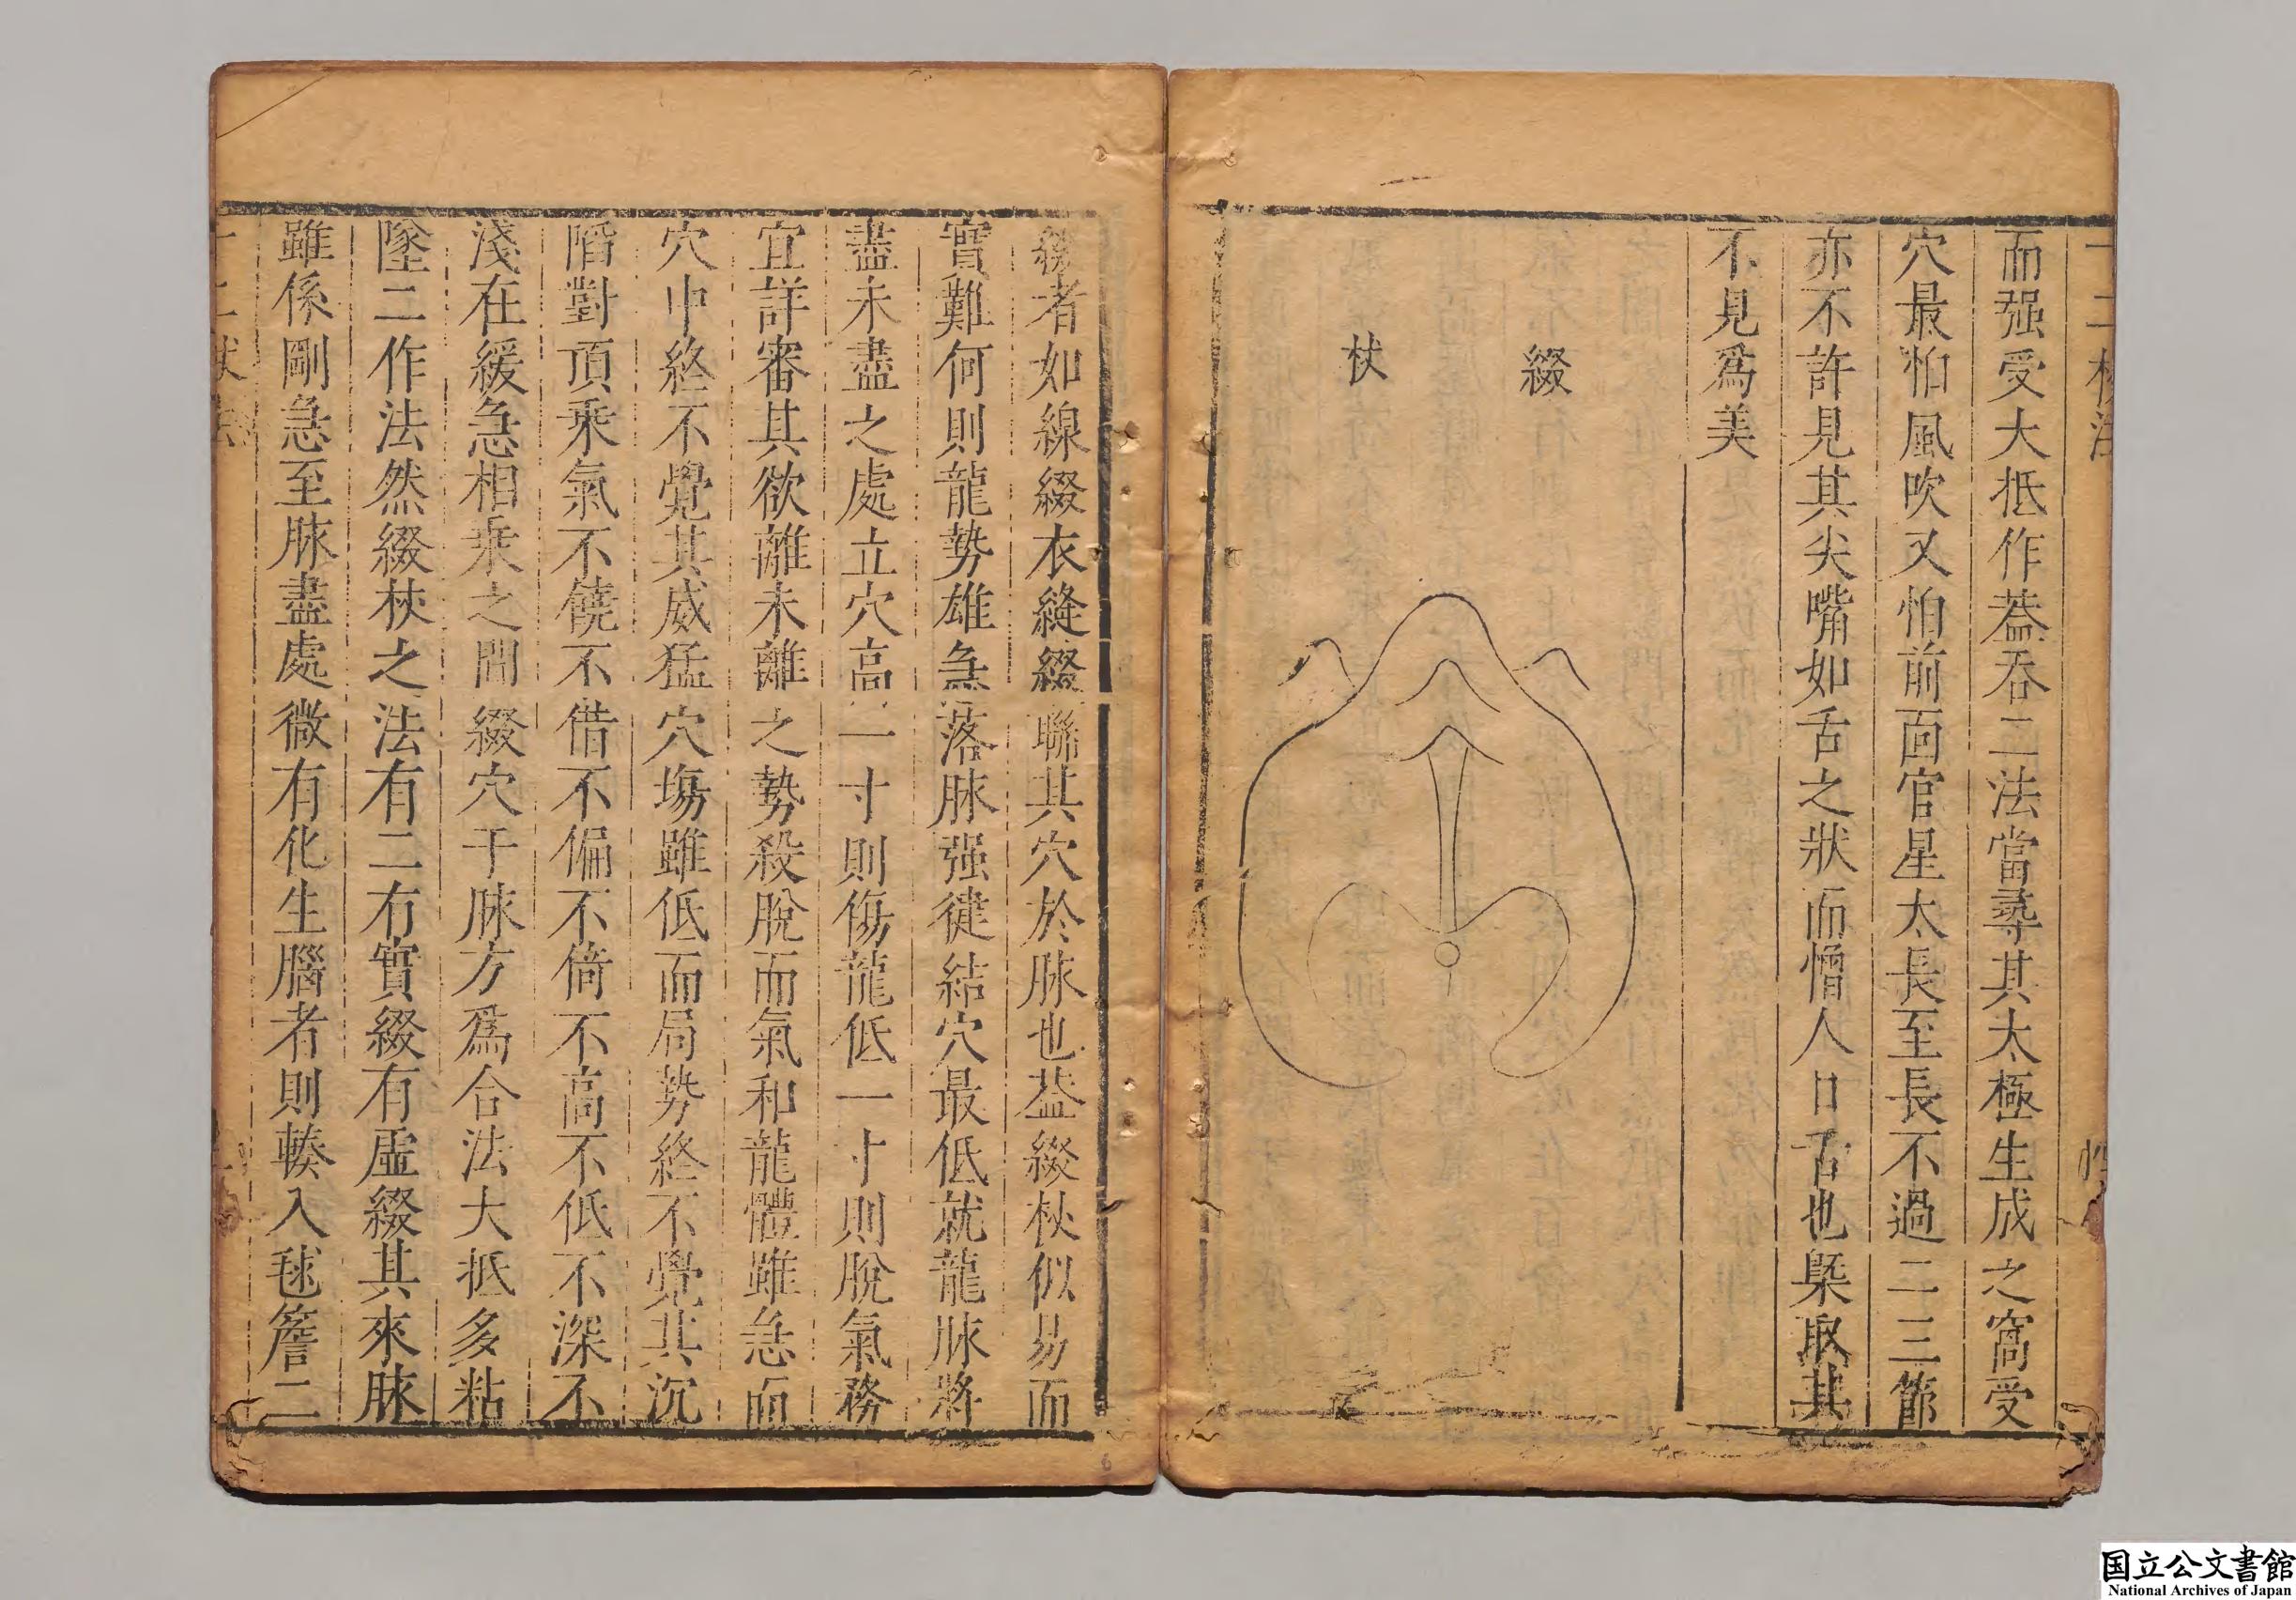 十二杖法
而强受大抵作葢吞二法當尋其太極生成之窩受
穴最怕風吹又怕前面官星太長至長不過二三節
亦不許見其尖嘴如舌之狀而憎人口舌也槩取其
不見爲美
綴
杖
綴者如線綴衣縫綴聯其穴於脉也葢綴杖似易而
實難何則龍勢雄急落脉强徤結穴最低就龍脉將
盡未盡之處立穴高一寸則傷龍低一寸則脫氣務
宜詳審其欲離未離之勢殺脫而氣和龍體雖急而
穴中終不覺其威猛穴塲雖低而局势終不覺其沉
陷對頂乘氣不饒不借不偏不倚不高不低不深不
淺在緩急相乘之間綴穴于脉方爲合法大抵多粘
墜二作法然綴杖之法有二有實綴有虛綴其來脉
雖係剛急至脉盡處微有化生腦者則輳入毬簷二
十二杖法
国立公文書館
National Archives of Japan